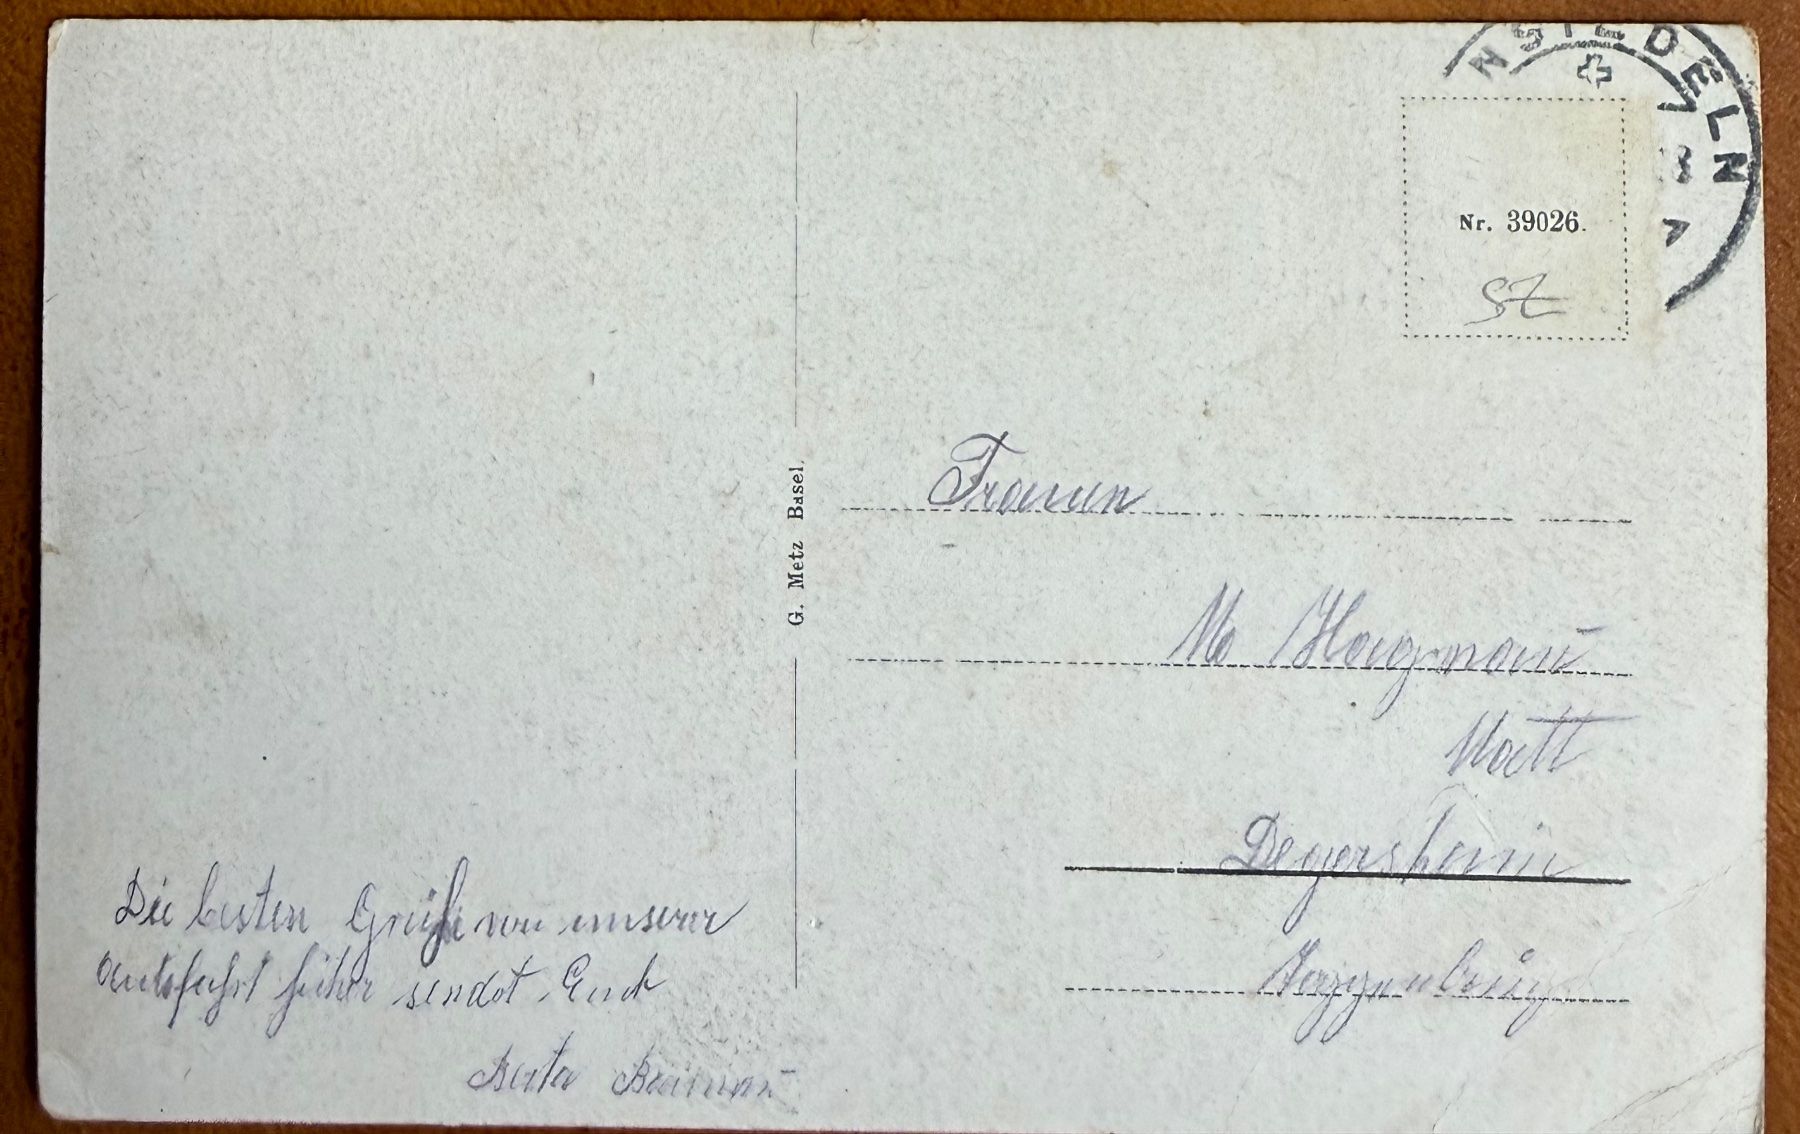 NSIEDELN
Nr. 39026.
SZ
G. Metz Basel.
Frauen
Hagmann̄
Watt
Degersheim
Toggenburg
Die besten Grüße von unserer
Autofahrt hieher sendet Euch
Berta